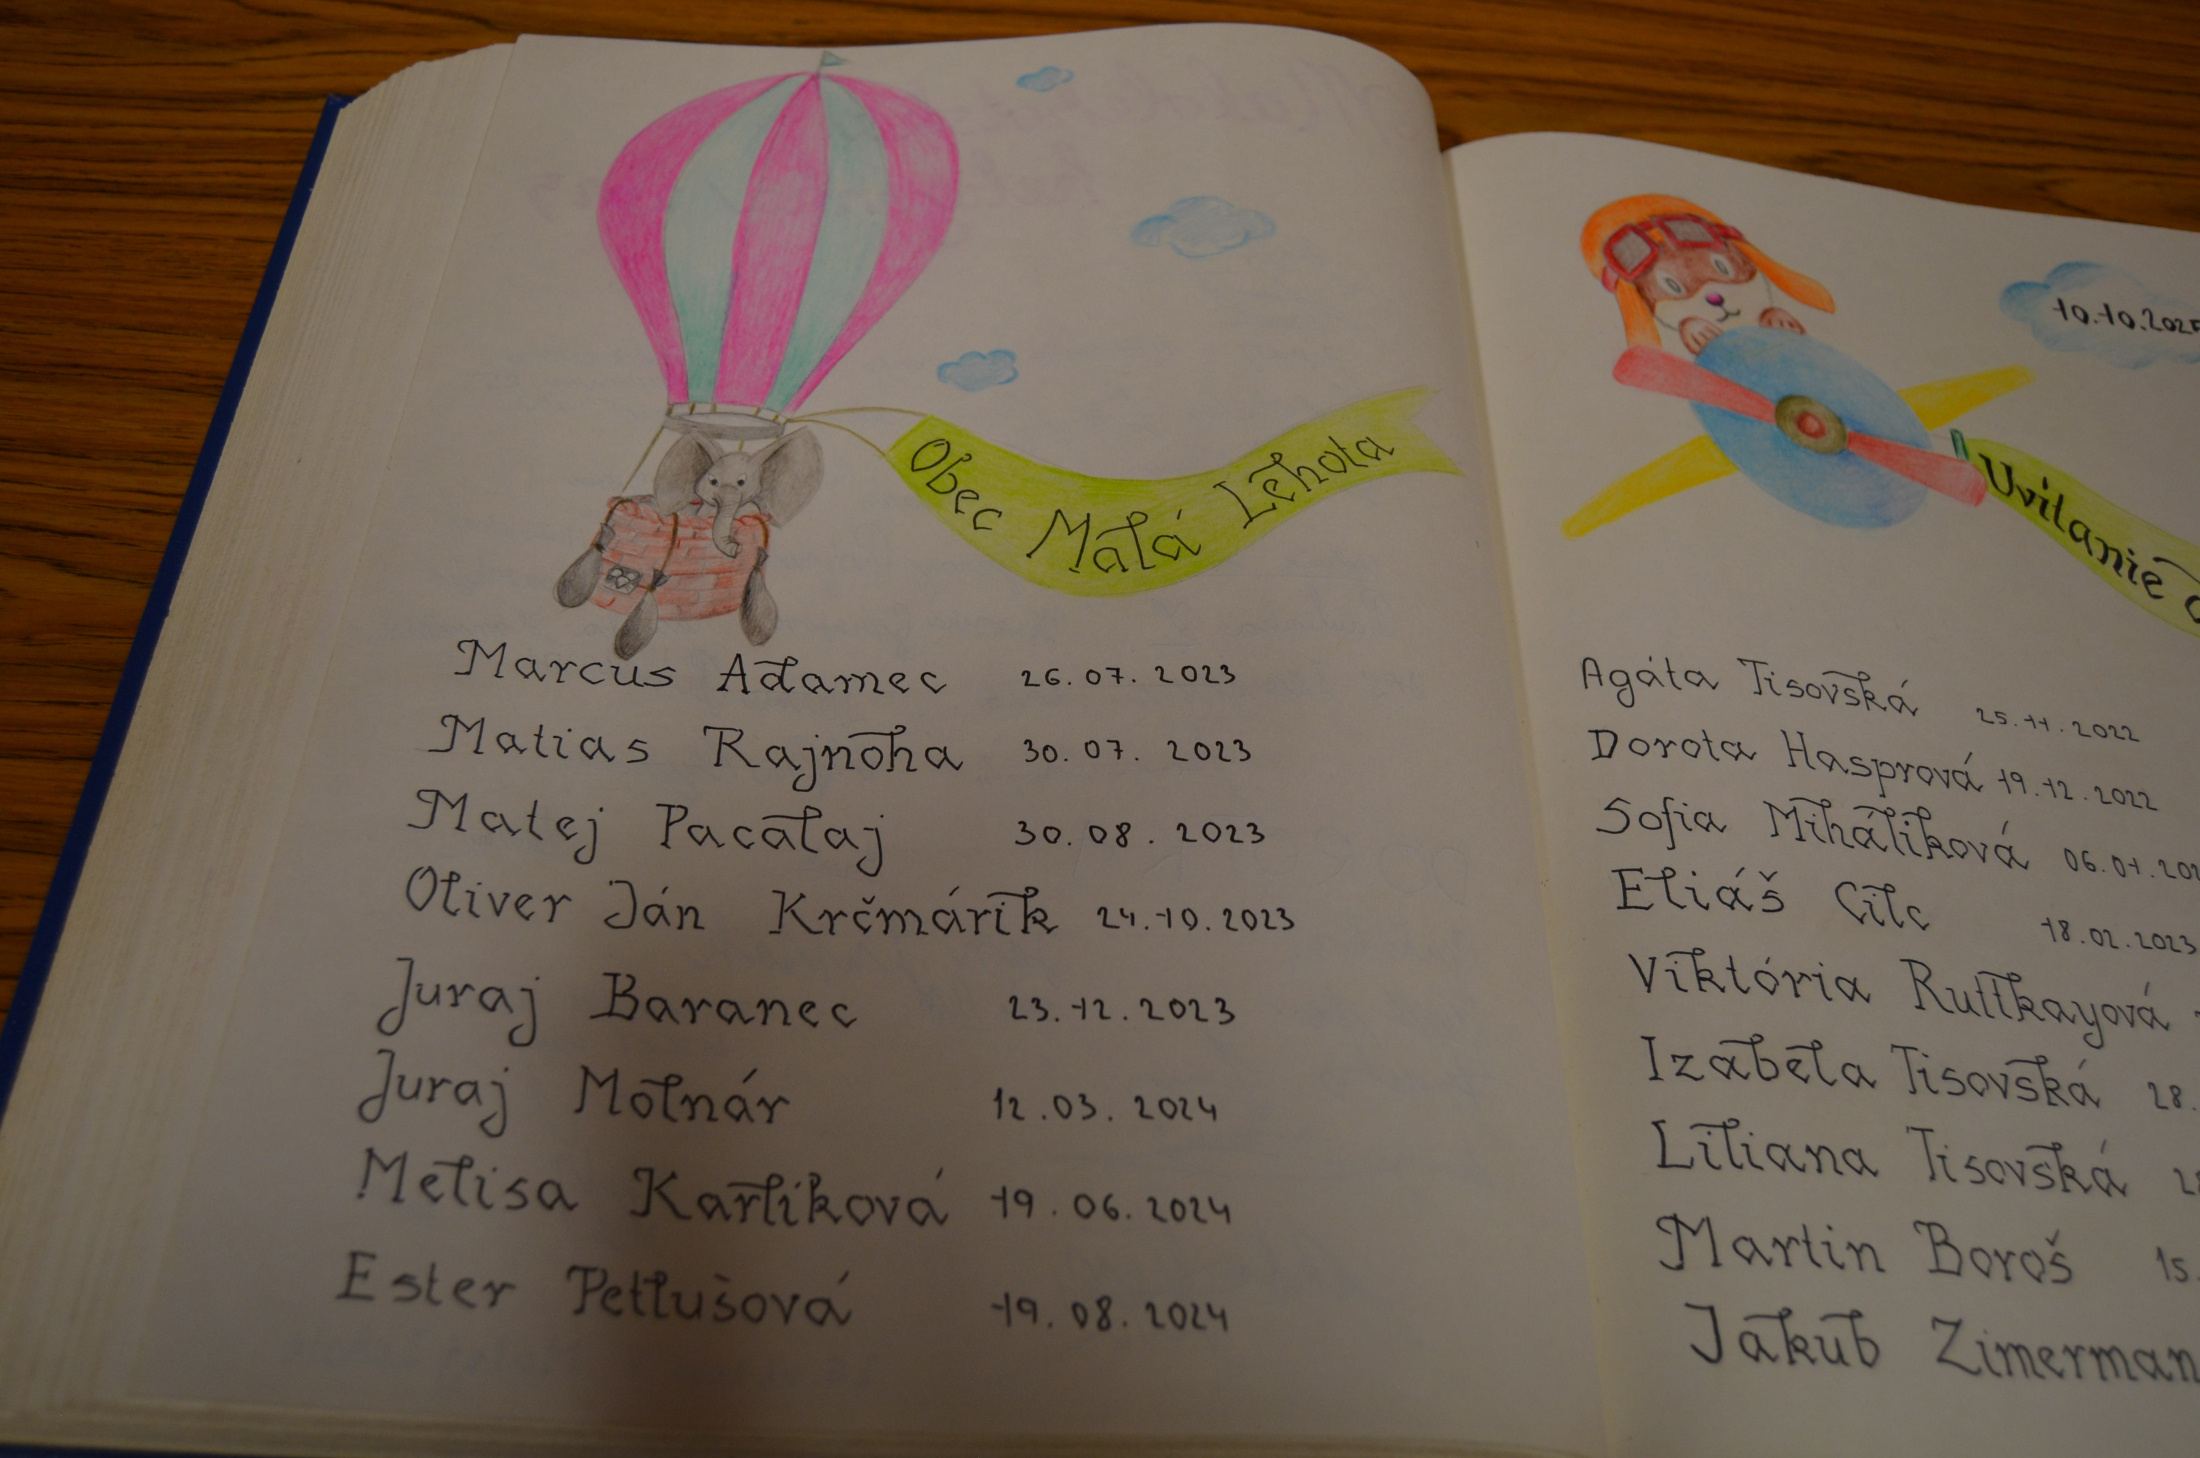 Obec Malá Lehota
Marcus Adamec 26.07.2023
Matias Rajnoha 30.07.2023
Matej Pacalaj 30.08.2023
Oliver Ján Krčmárik 24.10.2023
Juraj Baranec 23.12.2023
Juraj Molnár 12.03.2024
Melisa Karlíková 19.06.2024
Ester Petlušová 19.08.2024
10.10.2025
Uvítanie
Agáta Tisovská 25.11.2022
Dorota Hasprová 19.12.2022
Sofia Miháliková 06.01.202
Eliáš Cílc 18.02.2023
Viktória Ruttkayová
Izabela Tisovská 28.
Liliana Tisovská 28
Martin Boroš 15.
Jakub Zimerman